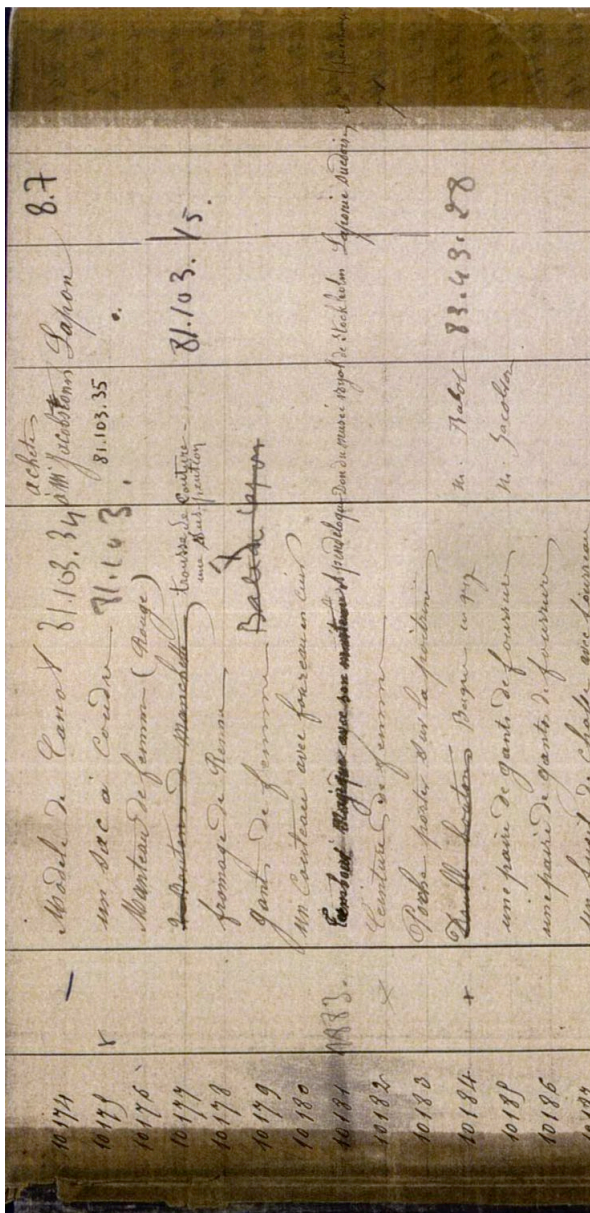 10174 — Modèle de Canot 81.103.34 acheté à Mr Jacobson Lapon 8.7
10175 x un sac à coudre 81.103. 81.103.35
10176 Manteau de femme (Rouge)
10177 2 Boutons de Manchette trousse de couture - 81.103.15.
10178 fromage de Renne
10179 gants de femme
10180 un Couteau avec foureau en cuir
10181 1883. Tambour Magique avec son marteau & pendeloque Don du musée royal de Stockholm Laponie suédoise
10182 x Ceinture de femme
10183 Poche portée sur la poitrine
10184 + Double boutons Bague en Mr. 83.43.28
10185 une paire de gants de fourrure Mr. Jacobson
10186 une paire de gants de fourrure
10187 un fusil de chasse avec fourreau